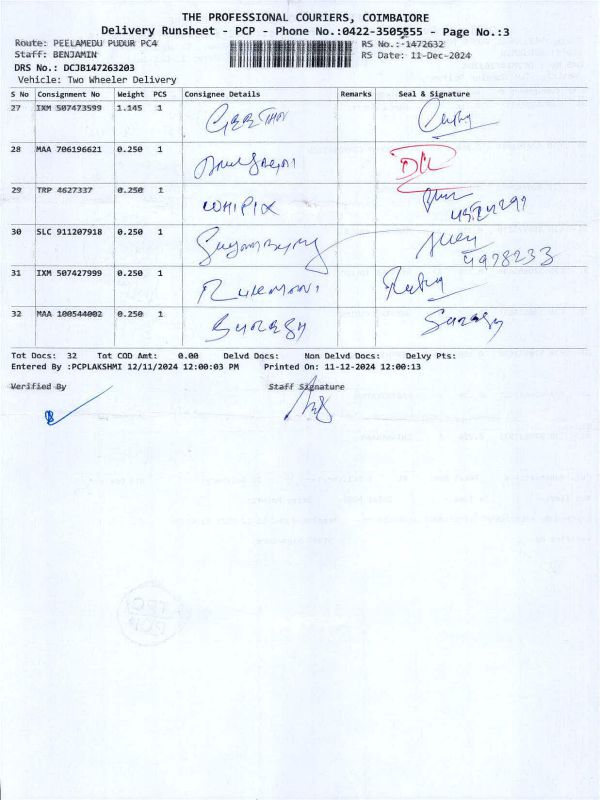 THE PROFESSIONAL COURIERS, COIMBATORE
Delivery Runsheet - PCP - Phone No.:0422-3505555 - Page No.:3
Route: PEELAMEDU PUDUR PC4
RS No.:-1472632
Staff: BENJAMIN
RS Date: 11-Dec-2024
DRS No.: DCJB147263203
Vehicle: Two Wheeler Delivery
S No Consignment No Weight PCS Consignee Details Remarks Seal & Signature
27 IXM 507473599 1.145 1
28 MAA 706196621 0.250 1
29 TRP 4627337 0.250 1 WHIPIX
30 SLC 911207918 0.250 1
4928233
31 IXM 507427999 0.250 1
32 MAA 100544002 0.250 1
Tot Docs: 32 Tot COD Amt: 0.00 Delvd Docs: Non Delvd Docs: Delvy Pts:
Entered By :PCPLAKSHMI 12/11/2024 12:00:03 PM Printed On: 11-12-2024 12:00:13
Verified By Staff Signature